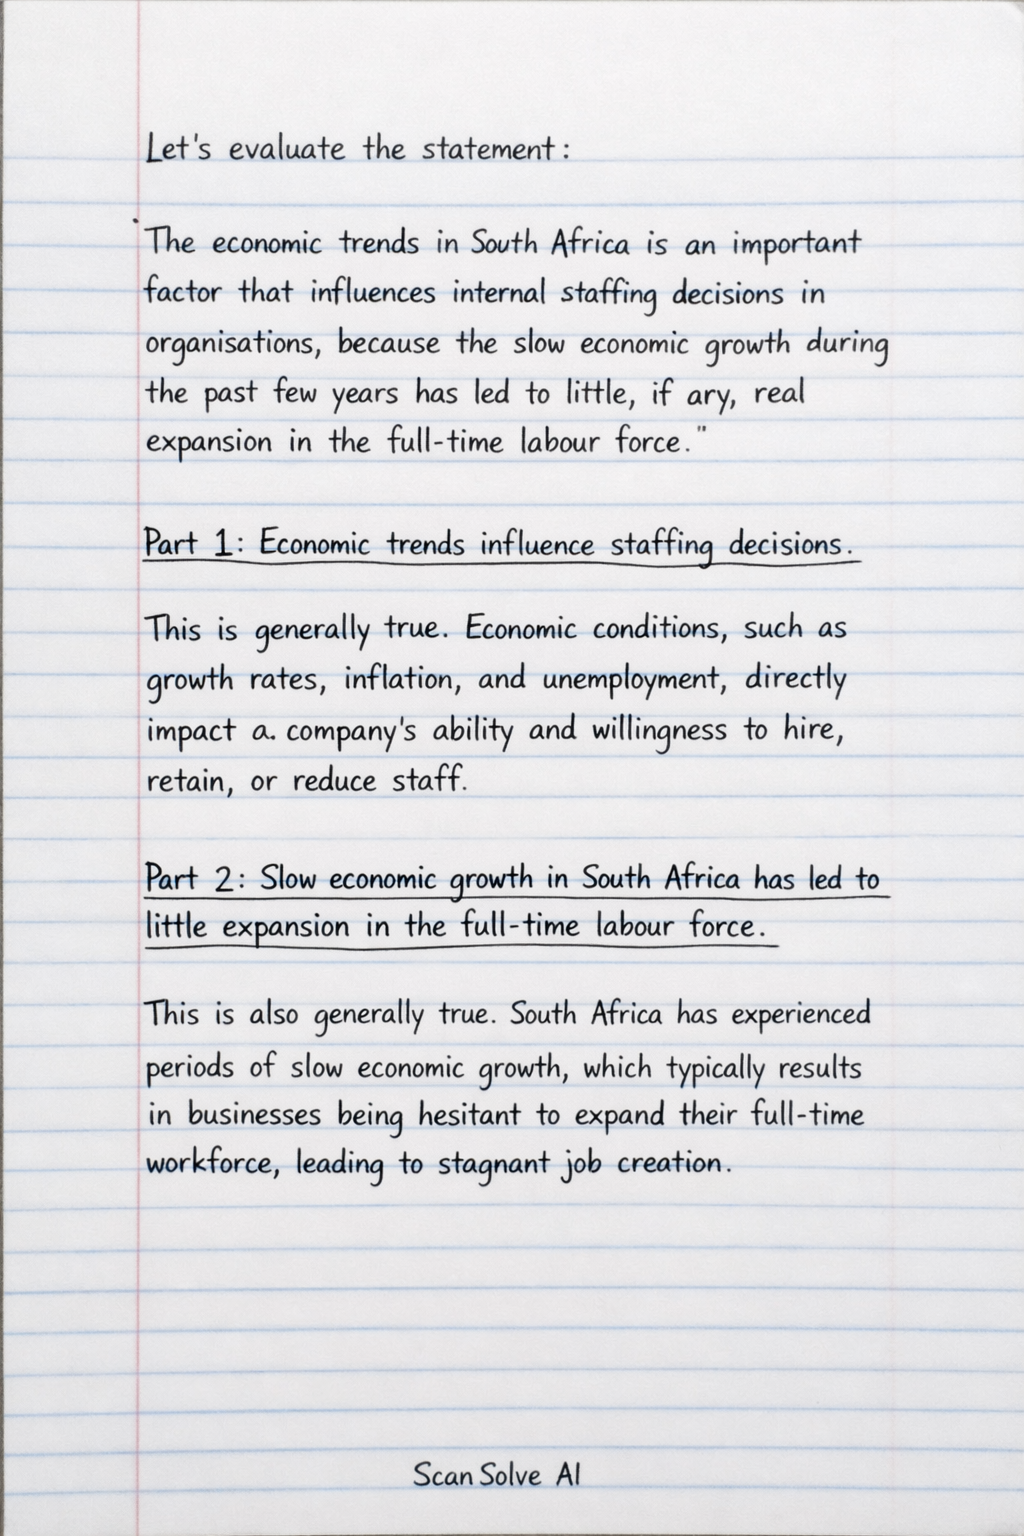 Let's evaluate the statement:
The economic trends in South Africa is an important
factor that influences internal staffing decisions in
organisations, because the slow economic growth during
the past few years has led to little, if ary, real
expansion in the full-time labour force."
Part 1: Economic trends influence staffing decisions.
This is generally true. Economic conditions, such as
growth rates, inflation, and unemployment, directly
impact a. company's ability and willingness to hire,
retain, or reduce staff.
Part 2: Slow economic growth in South Africa has led to
little expansion in the full-time labour force.
This is also generally true. South Africa has experienced
periods of slow economic growth, which typically results
in businesses being hesitant to expand their full-time
workforce, leading to stagnant job creation.
Scan Solve AI